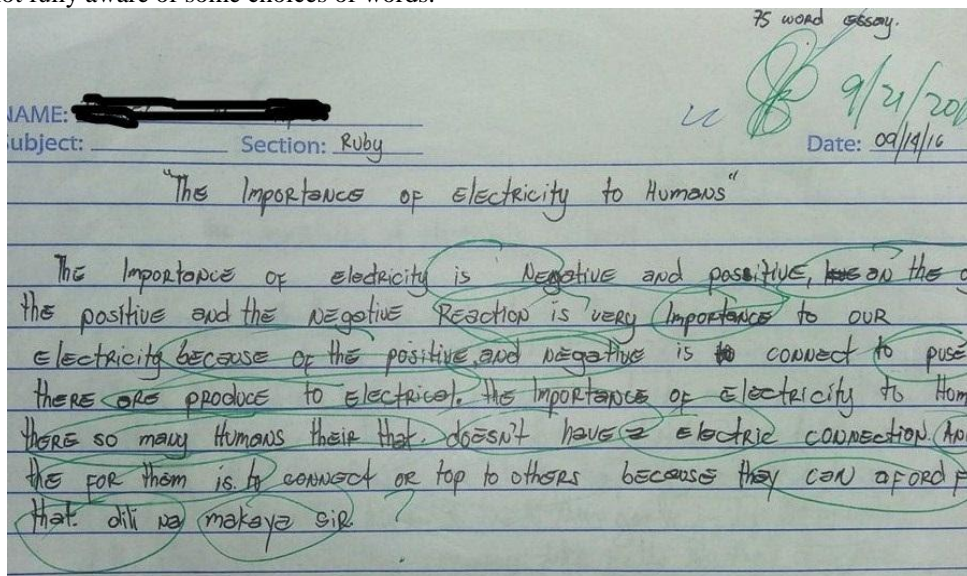 not fully aware of some choices of words.
75 word essay.
9/21/20
NAME:
Subject: Section: Ruby Date: 09/14/16
"The Importance of Electricity to Humans"
The Importance of eledricity is Negative and possitive, on the
the positive and the negative Reaction is very Importance to our
Electricity because of the positive and negative is connect to puse
there are produce to Electrical. the Importance of Electricity to Hom
there so many Humans their that. doesn't have a electric connection. An
the for them is to connect or top to others because they can aford F
that. dili na makaya sir. ?